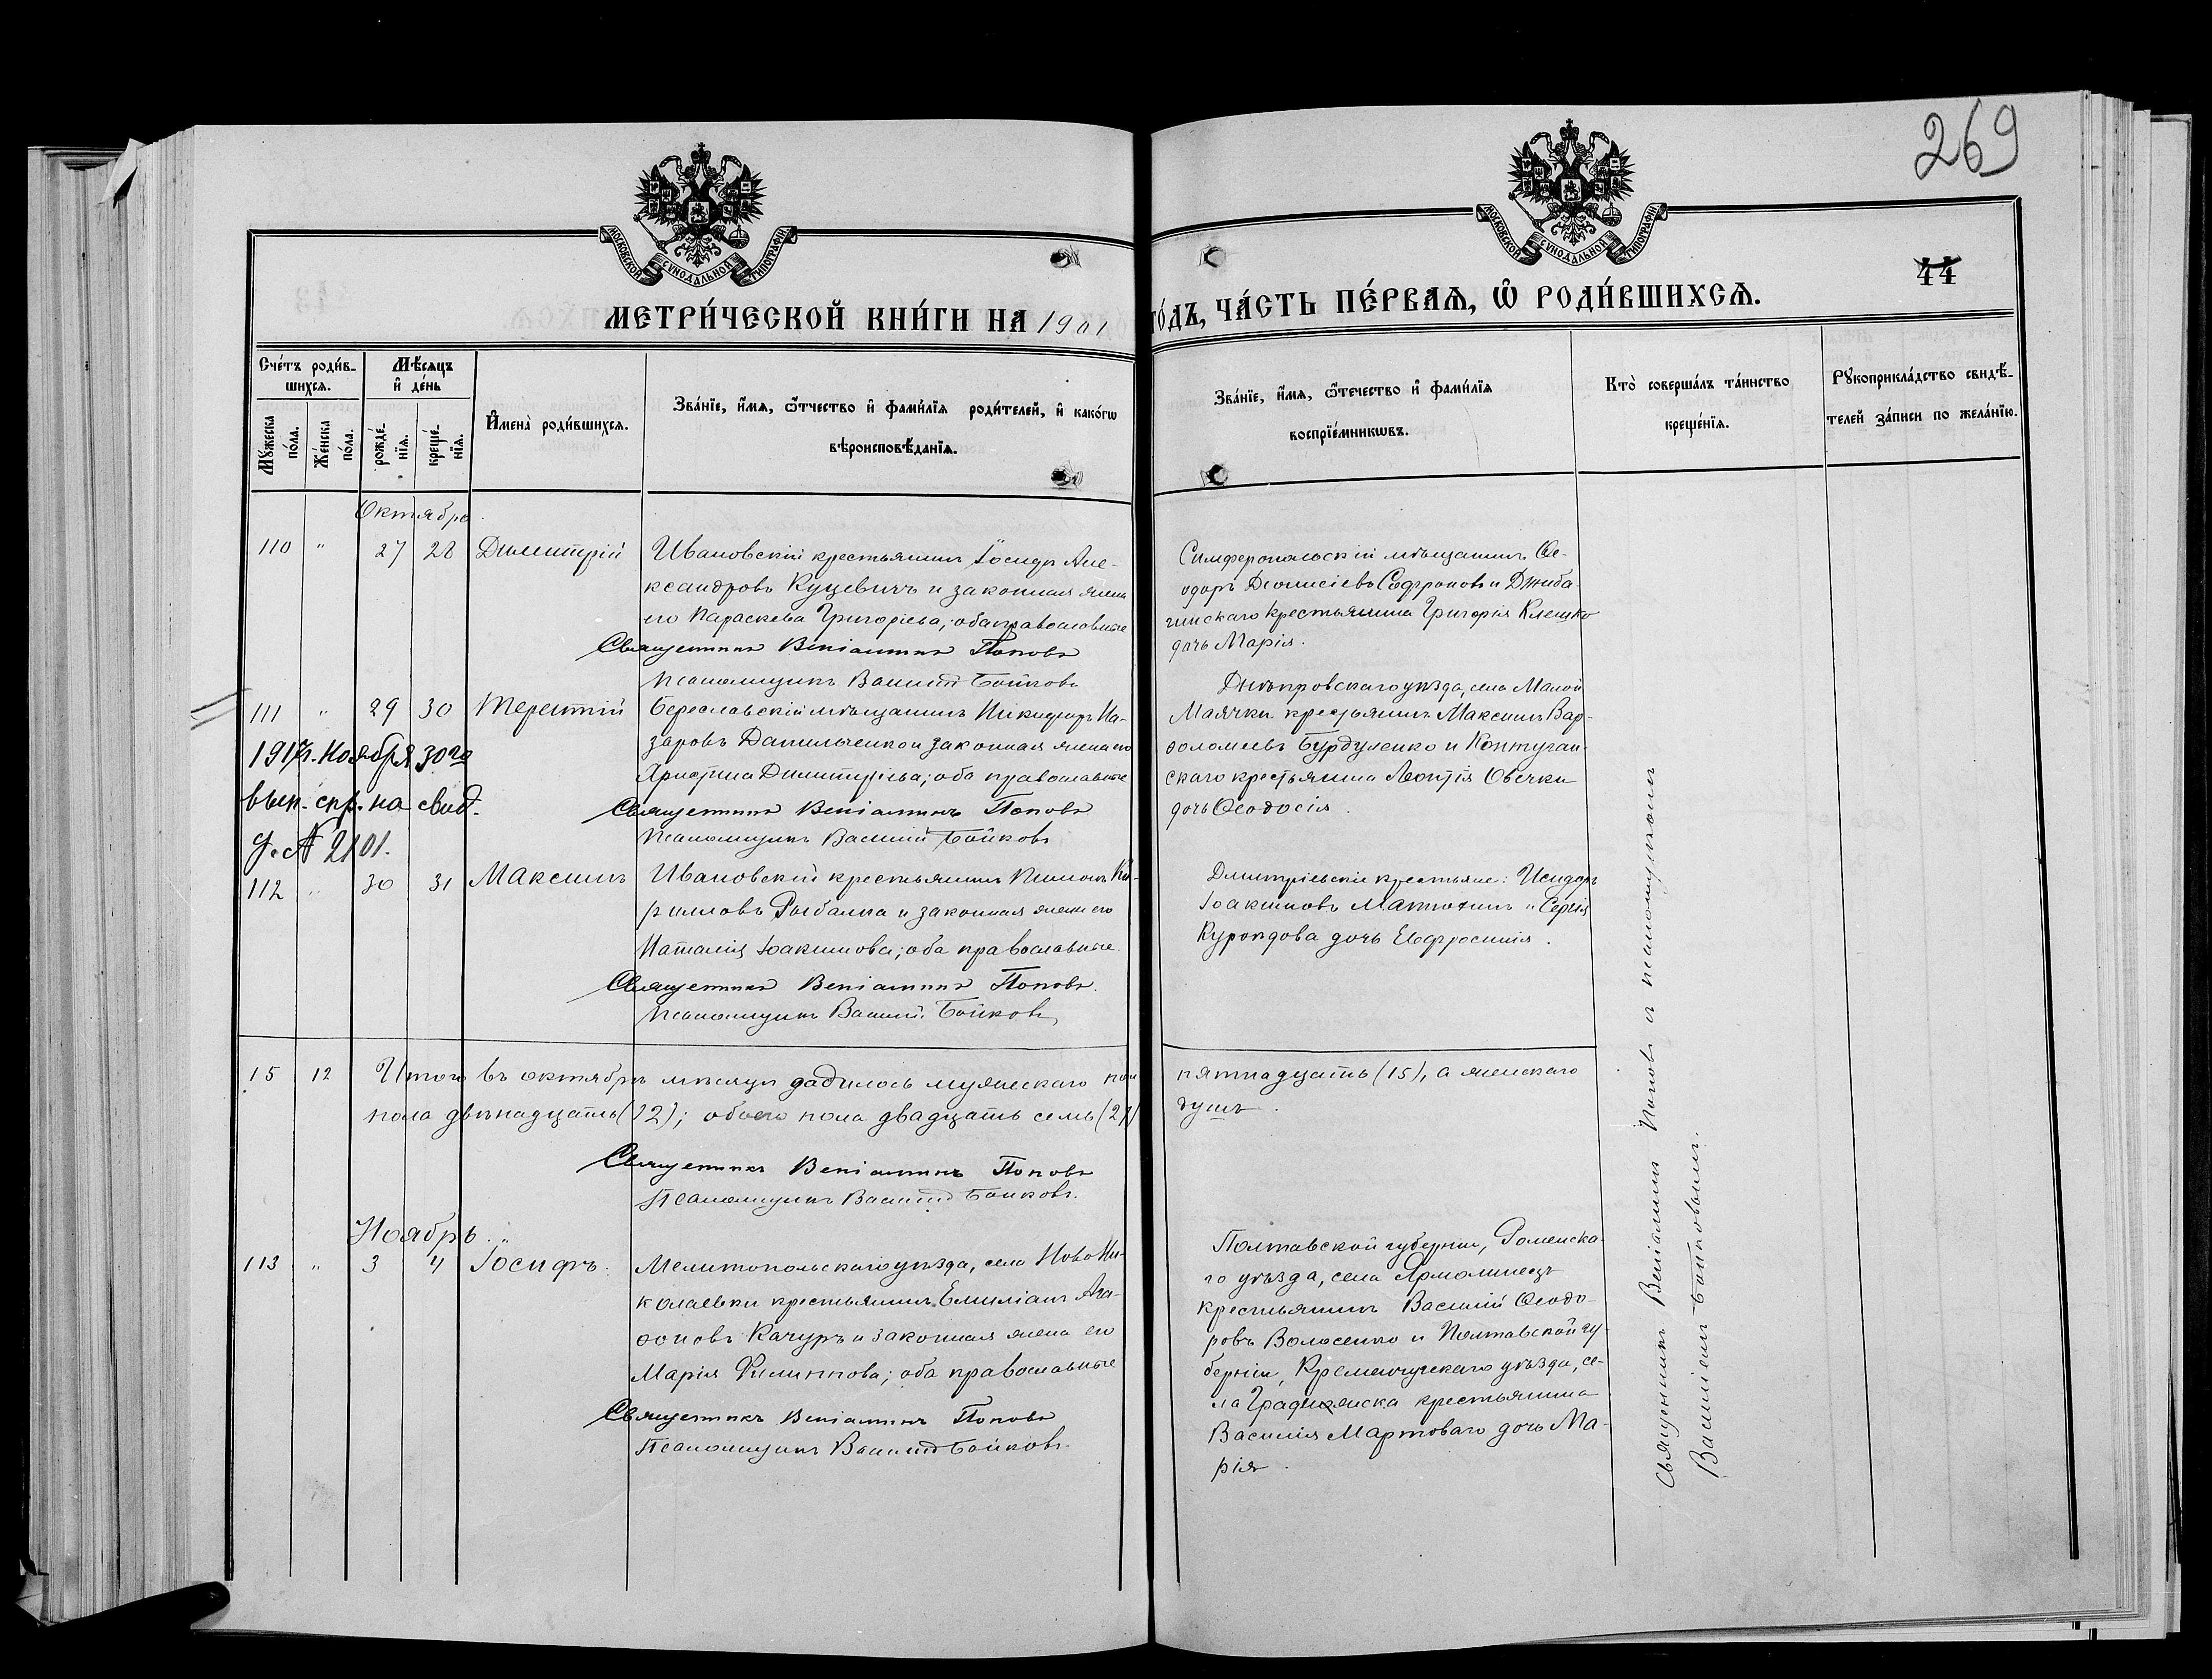 269
МОСКОВСКОЙ СѴНОДАЛЬНОЙ ТИПОГРАФІИ
МОСКОВСКОЙ СѴНОДАЛЬНОЙ ТИПОГРАФІИ
44
МЕТРИ́ЧЕСКОЙ КНИ́ГИ НА 1901 ГО́ДЪ, ЧА́СТЬ ПЕ́РВАѦ, Ѽ РОДИ́ВШИХСѦ.
Сче́тъ роди́в-
шихсѧ.
Мꙋжеска по́ла.
Же́нска по́ла.
Мѣ́сѧцъ
и҆ де́нь
рожде́-
нїѧ.
креще́-
нїѧ.
И҆мена̀ роди́вшихсѧ.
Зва́нїе, и҆́мѧ, ѻ҆́тчество и҆ фами́лїѧ роди́телей, и҆ како́гѡ
вѣроисповѣ́данїѧ.
Зва́нїе, и҆́мѧ, ѻ҆́течество и҆ фами́лїѧ
воспрїе́мникѡвъ.
Кто̀ соверша́лъ та́инство
креще́нїѧ.
Рꙋкоприкла́дство свидѣ́-
телей за́писи по жела́нїю.
Октябрь
110 " 27 28 Димитрій
Ивановскій крестьянинъ Іосифъ Але-
ксандровъ Куцевичъ и законная жена
его Параскева Григоріева; оба православные
Священникъ Веніаминъ Поповъ
Псаломщикъ Василій Бойковъ
Симферопольскій мѣщанинъ Ѳе-
одоръ Діонисіевъ Софроновъ и Джиба-
гинскаго крестьянина Григорія Клешко
дочь Марія.
111 " 29 30 Терентій
Береславскій мѣщанинъ Никифоръ На-
заровъ Данильченко и законная жена его
Христина Димитріева; оба православные
Священникъ Веніаминъ Поповъ
Псаломщикъ Василій Бойковъ
Днѣпровскаго уѣзда, села Малой
Маячки крестьянинъ Максимъ Вар-
ѳоломеевъ Бурдуленко и Контуган-
скаго крестьянина Леонтія Овечки
дочь Ѳеодосія.
1917г. Ноября 30го
вып. спр. на свид.
№ 2101.
112 " 30 31 Максимъ
Ивановскій крестьянинъ Пименъ Ки-
рилловъ Рыбалка и законная жена его
Наталія Іоакимова; оба православные.
Священникъ Веніаминъ Поповъ.
Псаломщикъ Василій Бойковъ
Дмитріевскіе крестьяне: Исидоръ
Іоакимовъ Матюхинъ и Сергія
дочь Евфросинія.
15 12 Итого въ октябрѣ мѣсяцѣ родилось мужескаго пола пятнадцать (15), а женскаго
пола двѣнадцать (12); обоего пола двадцать семь (27) душъ.
Священникъ Веніаминъ Поповъ
Псаломщикъ Василій Бойковъ.
Ноябрь.
113 " 3 4 Іосифъ.
Мелитопольскаго уѣзда, села Ново Ни-
колаевки крестьянинъ Емиліанъ Ага-
ѳоновъ Качуръ и законная жена его
Марія Филиппова; оба православные
Священникъ Веніаминъ Поповъ
Псаломщикъ Василій Бойковъ.
Полтавской губерніи, Роменска-
го уѣзда, села Ярмолинецъ
крестьянинъ Василій Ѳеодо-
ровъ Волосенко и Полтавской гу-
берніи, Кременчугскаго уѣзда, се-
ла Градижска крестьянина
Василія Мартоваго дочь Ма-
рія.
Священникъ Веніаминъ Поповъ съ псаломщикомъ
Василіемъ Бойковымъ.